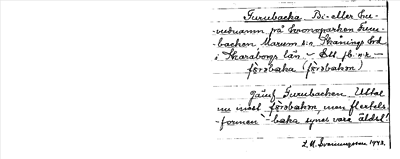 Furubacka Bi- eller hu-
-vudnamn på kronoparken Furu-
backen Marum s:n Skånings hd
i Skaraborgs län - Ett fb. n:r -
förobaka (förobakan)
Jämf. Furubacken. Uttal
nu mest förobakan, men flertals-
formen -baka synes vara äldst!
L. M. Svanungsson 1943.